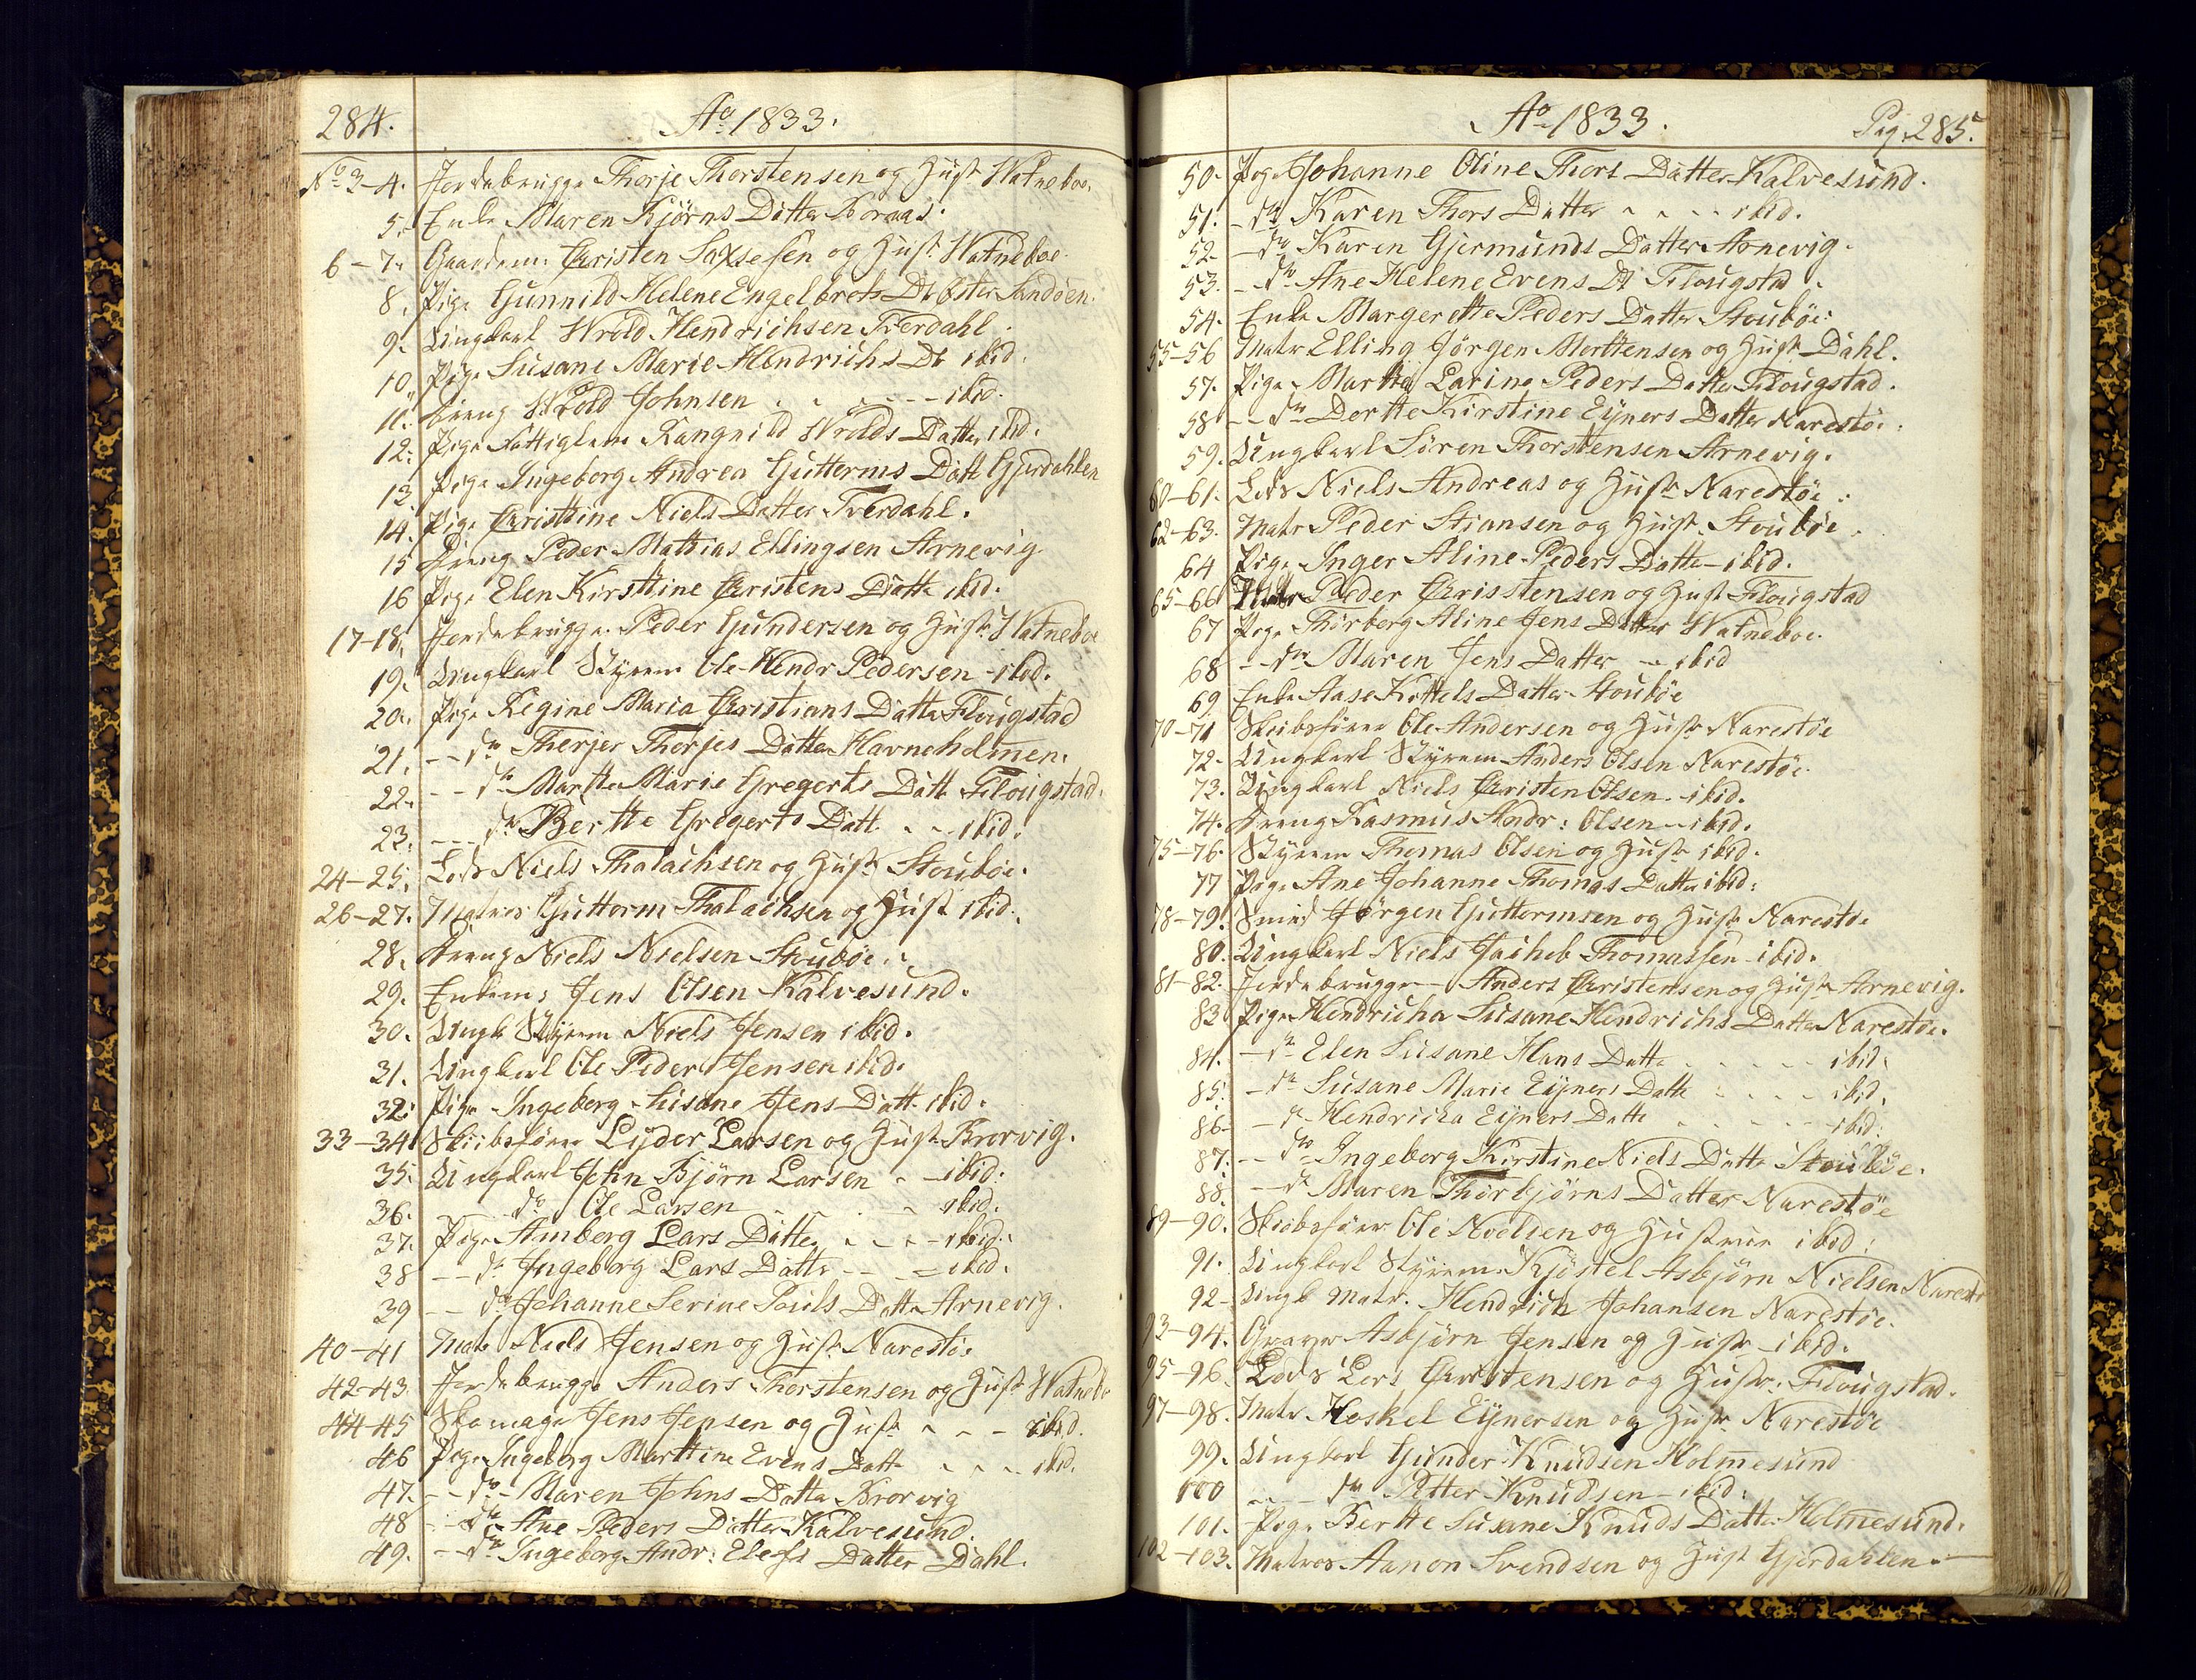 284.
Ao 1833.
No 3-4. Jordebrugge Thorje Thorstensen og Hust Watneboe.
5. Enke Maren Bjørns Datter Boraas.
6-7. Gaardm: Christen Saxsesen og Hust Watneboe.
8. Pige Gunnild Helene Engelbrets Dt Øster Sandøen.
9. Ungkarl Wrold Hendrichsen Tverdahl.
10. Pige Susane Marie Hendrichs Dt ibid.
11. Dreng Wrold Johnsen - - - ibid.
12. Pige Fattiglem Rangnild Wrolds Datter ibid.
13 Pige Ingeborg Andrea Gutterms Datt Gjerdahlen
14. Pige Christtine Niels Datter Tverdahl.
15 Dreng Peder Mathias Ellingsen Arnevig
16 Pige Elen Kirsttine Christens Datte ibid.
17-18. Jordebrugge Peder Gundersen og Hust. Watneboe
19. Ungkarl Styrm Ole Hendr Pedersen - ibid.
20. Pige Regine Maria Christians Datter Flougstad
21. -- do Therjer Thorjes Datter Havneholmen.
22. -- do Marthe Marie Gregerts Datt Flougstad.
23. --- do Berthe Gregerts Datt. - - ibid.
24-25. Lods Niels Thalachsen og Hust Stoubøe.
26-27. Matros Guttorm Thalachsen og Hust ibid.
28. Dreng Niels Nielsen Stoubøe.
29. Enkem: Jens Olsen Kalvesund.
30. Ungk Styrm Niels Jensen ibid.
31. Ungkarl Ole Peder Jensen ibid.
32. Pige Ingeberg Susane Jens Datt ibid.
33-34 Skibsfører Lyder Larsen og Hust Brorvig.
35. Ungkarl John Bjørn Larsen - - ibid:
36. --- do Ole Larsen - - - ibid.
37. Pige Amberg Lars Datter - - - ibid.
38 -- do Ingeborg Lars Datter -- - ibid.
39 -- do Johanne Serine Pouls Datte Arnevig.
40-41 Matr Niels Jensen og Hust. Narestøe
42-43. Jordebrugge Anders Thorstensen og Hust Watneb
44-45 Skomage Jens Jensen og Hust - - - ibid.
46 Pige Ingeborg Marttine Evens Datt - - - ibid.
47. -- do - Maren Johns Datter Brorvig
48 -- do Ane Peders Datter Kalvesund.
49. -- do Ingeborg Andr: Elefs Datter Dahl.
Ao 1833.
Pag. 285.
50. Pige Johanne Oline Thors Datter Kalvesund.
51. - do Karen Thors Datter - - - - ibid.
52. - do Karen Gjermunds Datter Arnevig.
53. - do Ane Helene Evens Dt Flougstad
54. Enke Margerette Peders Datter Stoubøe.
55-56 Matr Elling Jørgen Morttensen og Hust Dahl.
57. Pige Marthe Larine Peders Datte Flougstad.
58 -- do Dorthe Kirstine Eyners Datter Narestøe.
59. Ungkarl Søren Thorstensen Arnevig.
60-61. Lods Niels Andreas og Hust Narestøe.
62-63. Matr Peder Stiansen og Hust. Stoubøe.
64 Pige Inger Aline Peders Datte - ibid.
65-66 Matr Peder Christensen og Hust Flougstad
67 Pige Thorberg Aline Jens Datter Watneboe.
68 -- do Maren Jens Datter - ibid
69 Enke Aase Kittels Datter Stoubøe
70-71 Skibsfører Ole Andersen og Hust Narestøe
72. Ungkarl Styrm Anders Olsen Narestøe.
73. Ungkarl Niels Christen Olsen - ibid.
74. Dreng Rasmus Andr: Olsen - ibid.
75-76. Styrm Thomas Olsen og Hust ibid.
77 Pige Ane Johanne Thomas Datter ibid:
78-79. Smed Jørgen Guttormsen og Hust Narestøe
80. Ungkarl Niels Jachob Thomassen - ibid.
81-82. Jordebrugge - Anders Christensen og Hust Arnevig.
83 Pige Hendricha Susane Hendrichs Datter Narestøe.
84. - do Elen Susane Hans Datte - - - ibid.
85. - do Susane Marie Eyners Datte - - - ibid.
86. - do Hendricha Eyners Datte - - - ibid.
87. -- do Ingeborg Kirstine Niels Datte Stoubøe.
88. -- do Maren Thorbjørns Datter Narestøe
89-90. Skibsfører Ole Nielsen og Hustrue ibid:
91. Ungkarl Styrm. Kjøstel Asbjørn Nielsen Narestø
92- Ungk Matr. Hendrich Johansen Narestøe.
93-94. Graver Asbjørn Jensen og Hustr - ibid.
95-96. Lods Lars Christensen og Hustr. Flougstad.
97-98. Matr Hoskel Eynersen og Hustr Narestøe
99. Ungkarl Gunder Knudsen Holmesund
100 --- do Petter Knudsen - ibid.
101. Pige Berthe Susane Knuds Datter Holmesund.
102-103. Matros Aanon Svendsen og Hust Gjerdahlen -